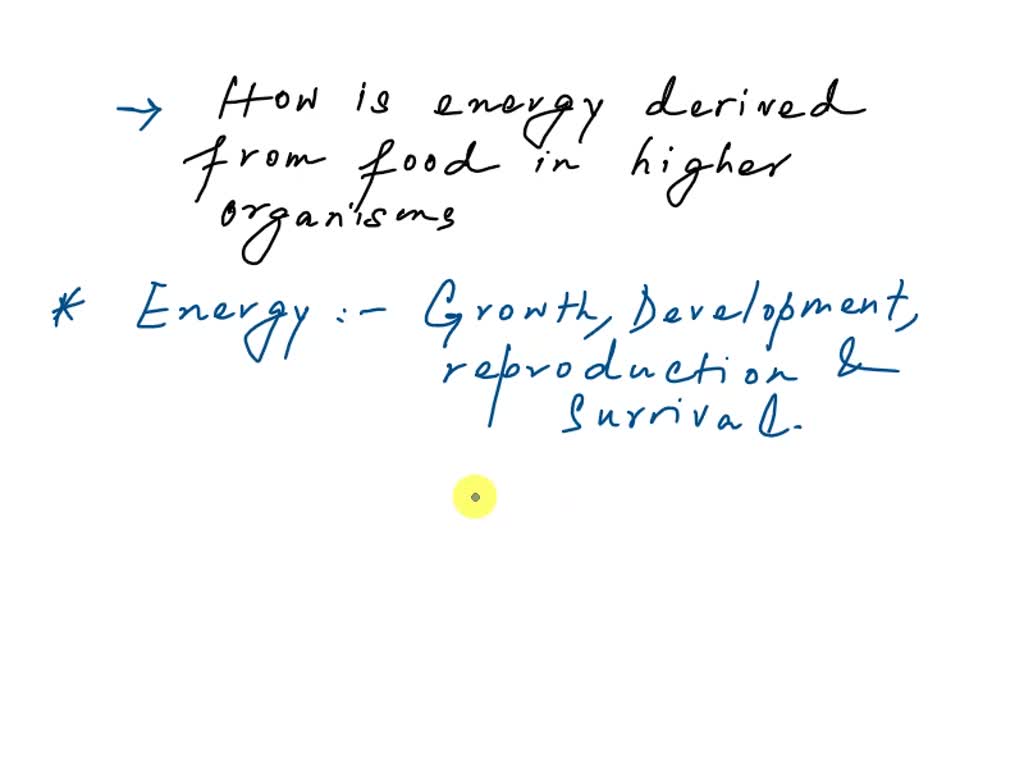 → How is energy derived
from food in higher
organisms
* Energy :- Growth, Development,
reproduction &
Survival.